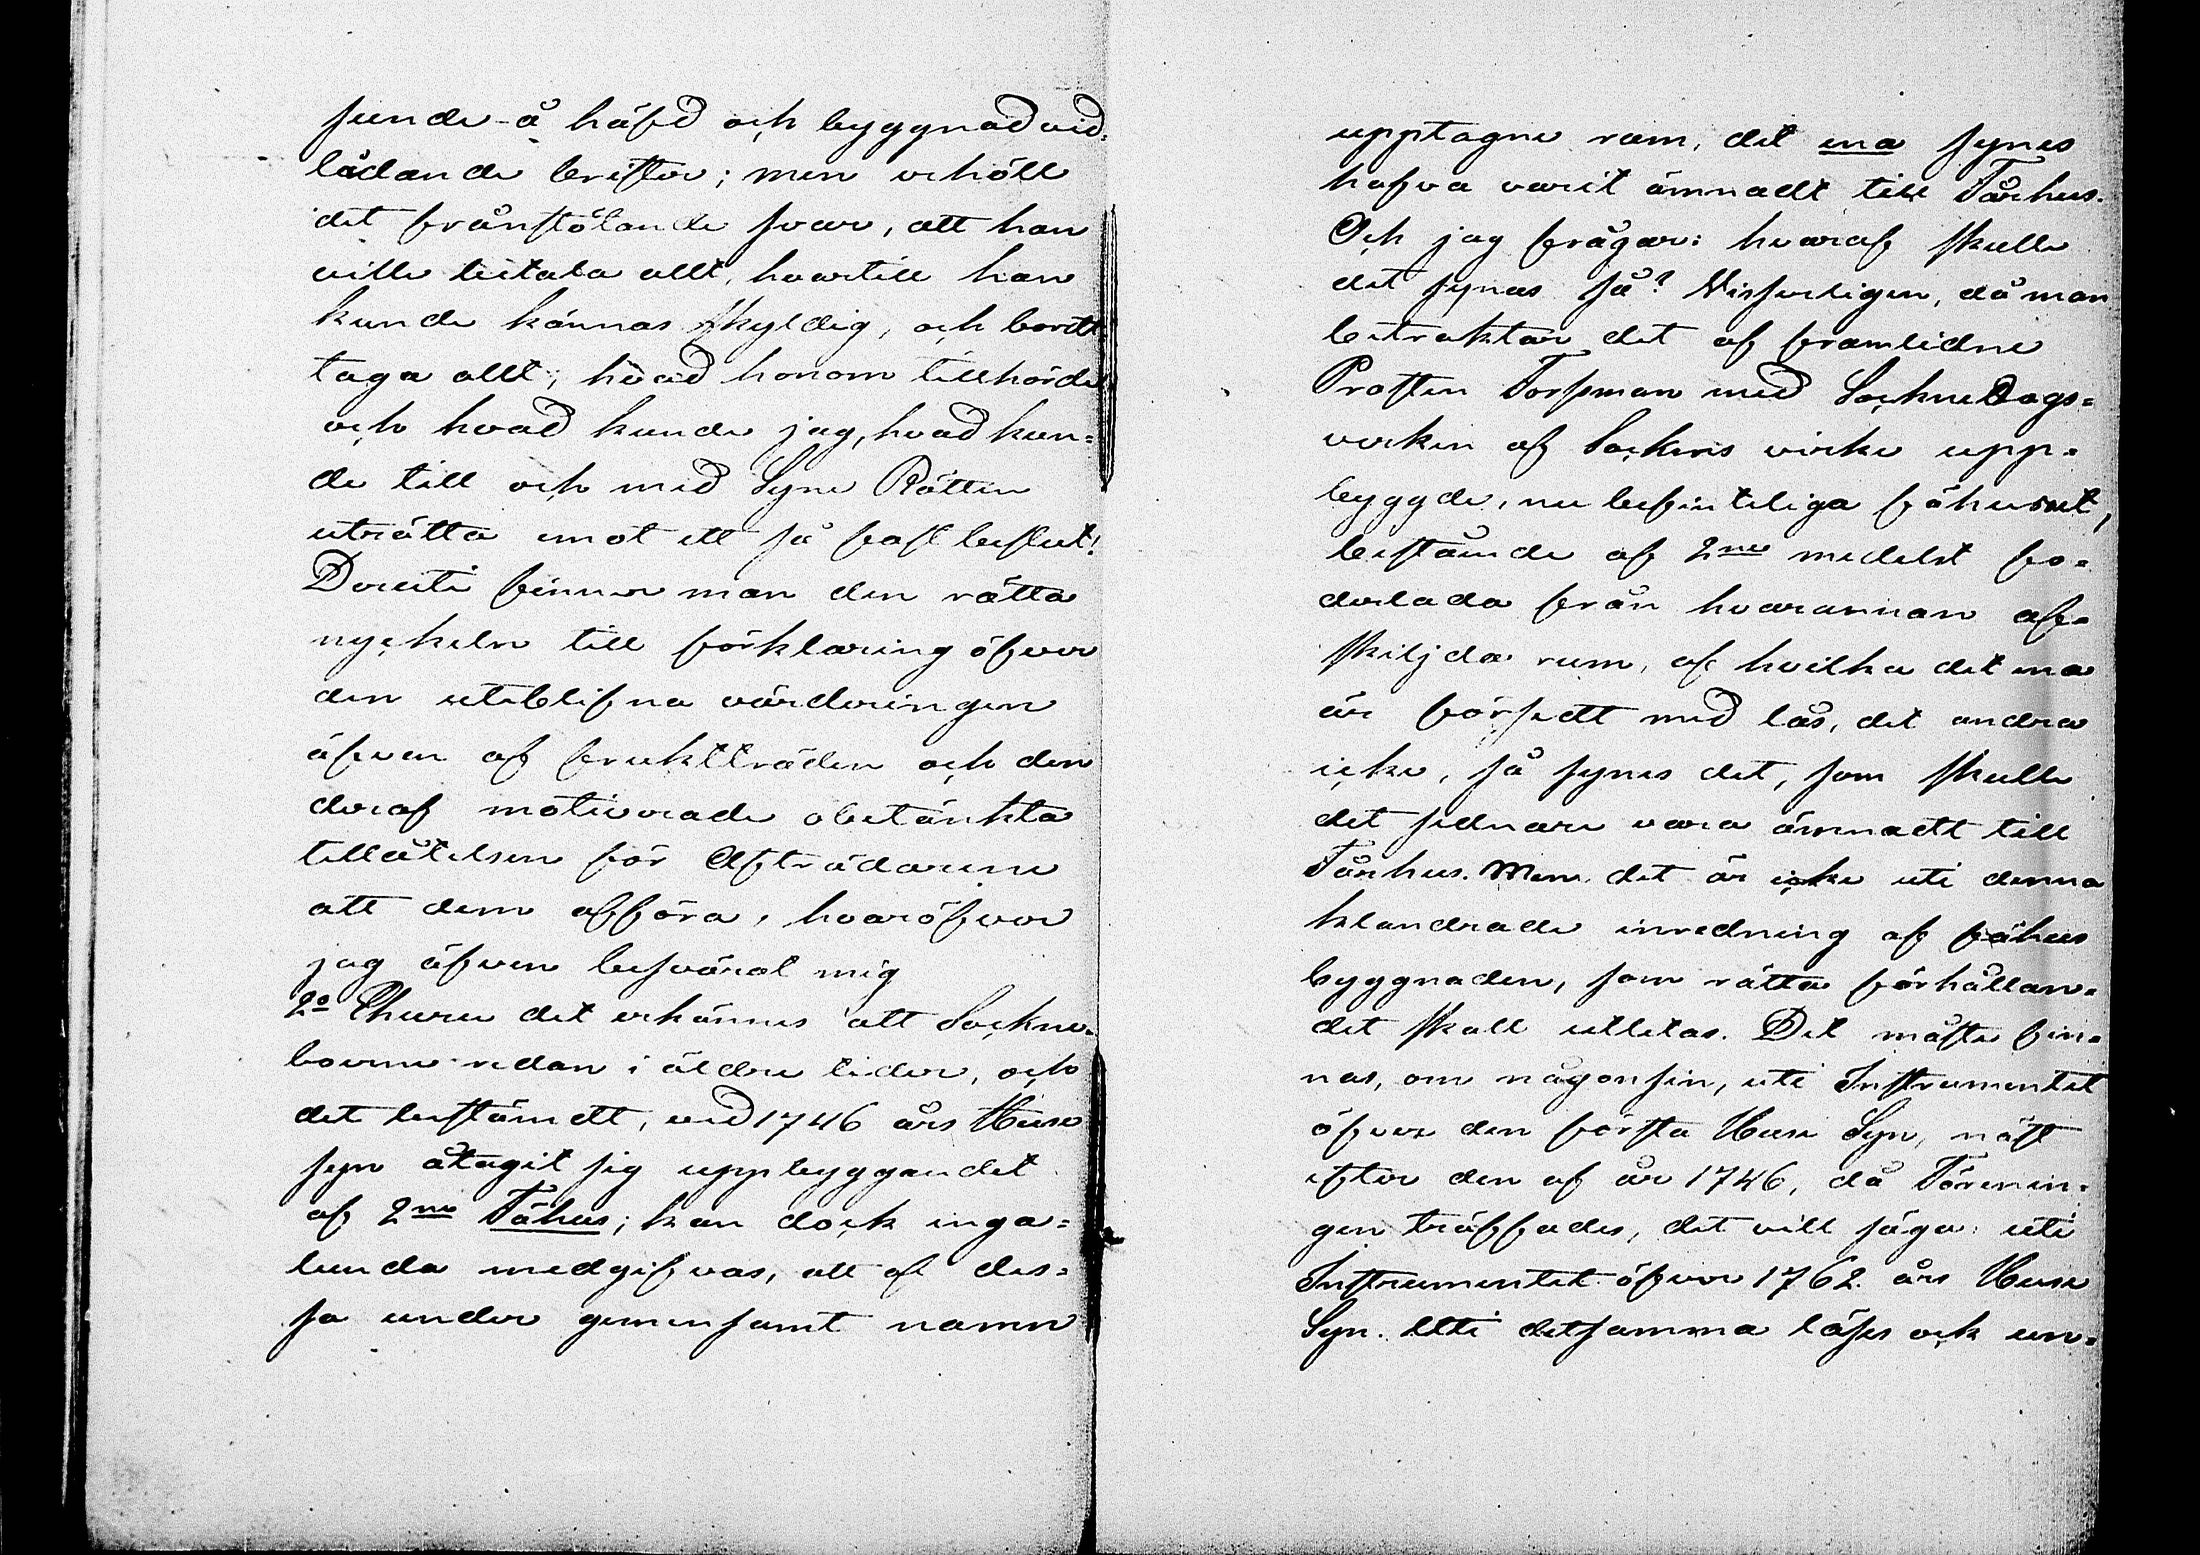 sunde å häfd och byggnad vid-
lådande brister; men erhöll
det frånstötande svar, att han
ville betala allt, hvartill han
kunde kännas skyldig, och bortt
taga allt, hvad honom tillhörde
och hvad kunde jag, hvad kun-
de till och med Syne Rätten
uträtta emot ett så fast beslut!
Deruti finner man den rätta
nyckeln till förklaring öfver
den uteblifna värderingen
äfven af fruktträden och den
deraf motiverade obetänkta
tillåtelsen för Afträdarene
att dem afföra, hvaröfver
jag äfven besvärat mig
2o Ehuru det erkännes att Sockne-
boerne redan i äldre tider, och
det bestämdt, vid 1746 års Huse
syn åtagit sig uppbyggandet
af 2ne Fähus; kan dock inga-
lunda medgifvas, att af des-
sa under gemensamt namn
upptagne rum, det ena synes
hafva varit ämnadt till Fårhus.
Och jag frågar: hvaraf skulle
det synas så? Visserligen, då man
betraktar det af framlidne
Prosten Forssman med Sockne Dags-
verken af Sockens virke upp-
byggde, nu befinteliga fähuset,
bestående af 2ne medelst fo-
derlada från hvarannan af-
skiljda rum, af hvilka det ena
är försedt med lås, det andra
icke, så synes det, som skulle
det sednare vara ämnadt till
Fårhus. Men det är icke uti denna
klandrade inredning af fähus
byggnaden, som rätta förhållan-
det skall utletas. Det måste fin-
nas, om någonsin, uti Instrumentet
öfver den första Huse Syn, näst
efter den af år 1746, då Förenin-
gen träffades, det vill säga: uti
Instrumentet öfver 1762 års Huse
Syn. Uti detsamma läses ock un-